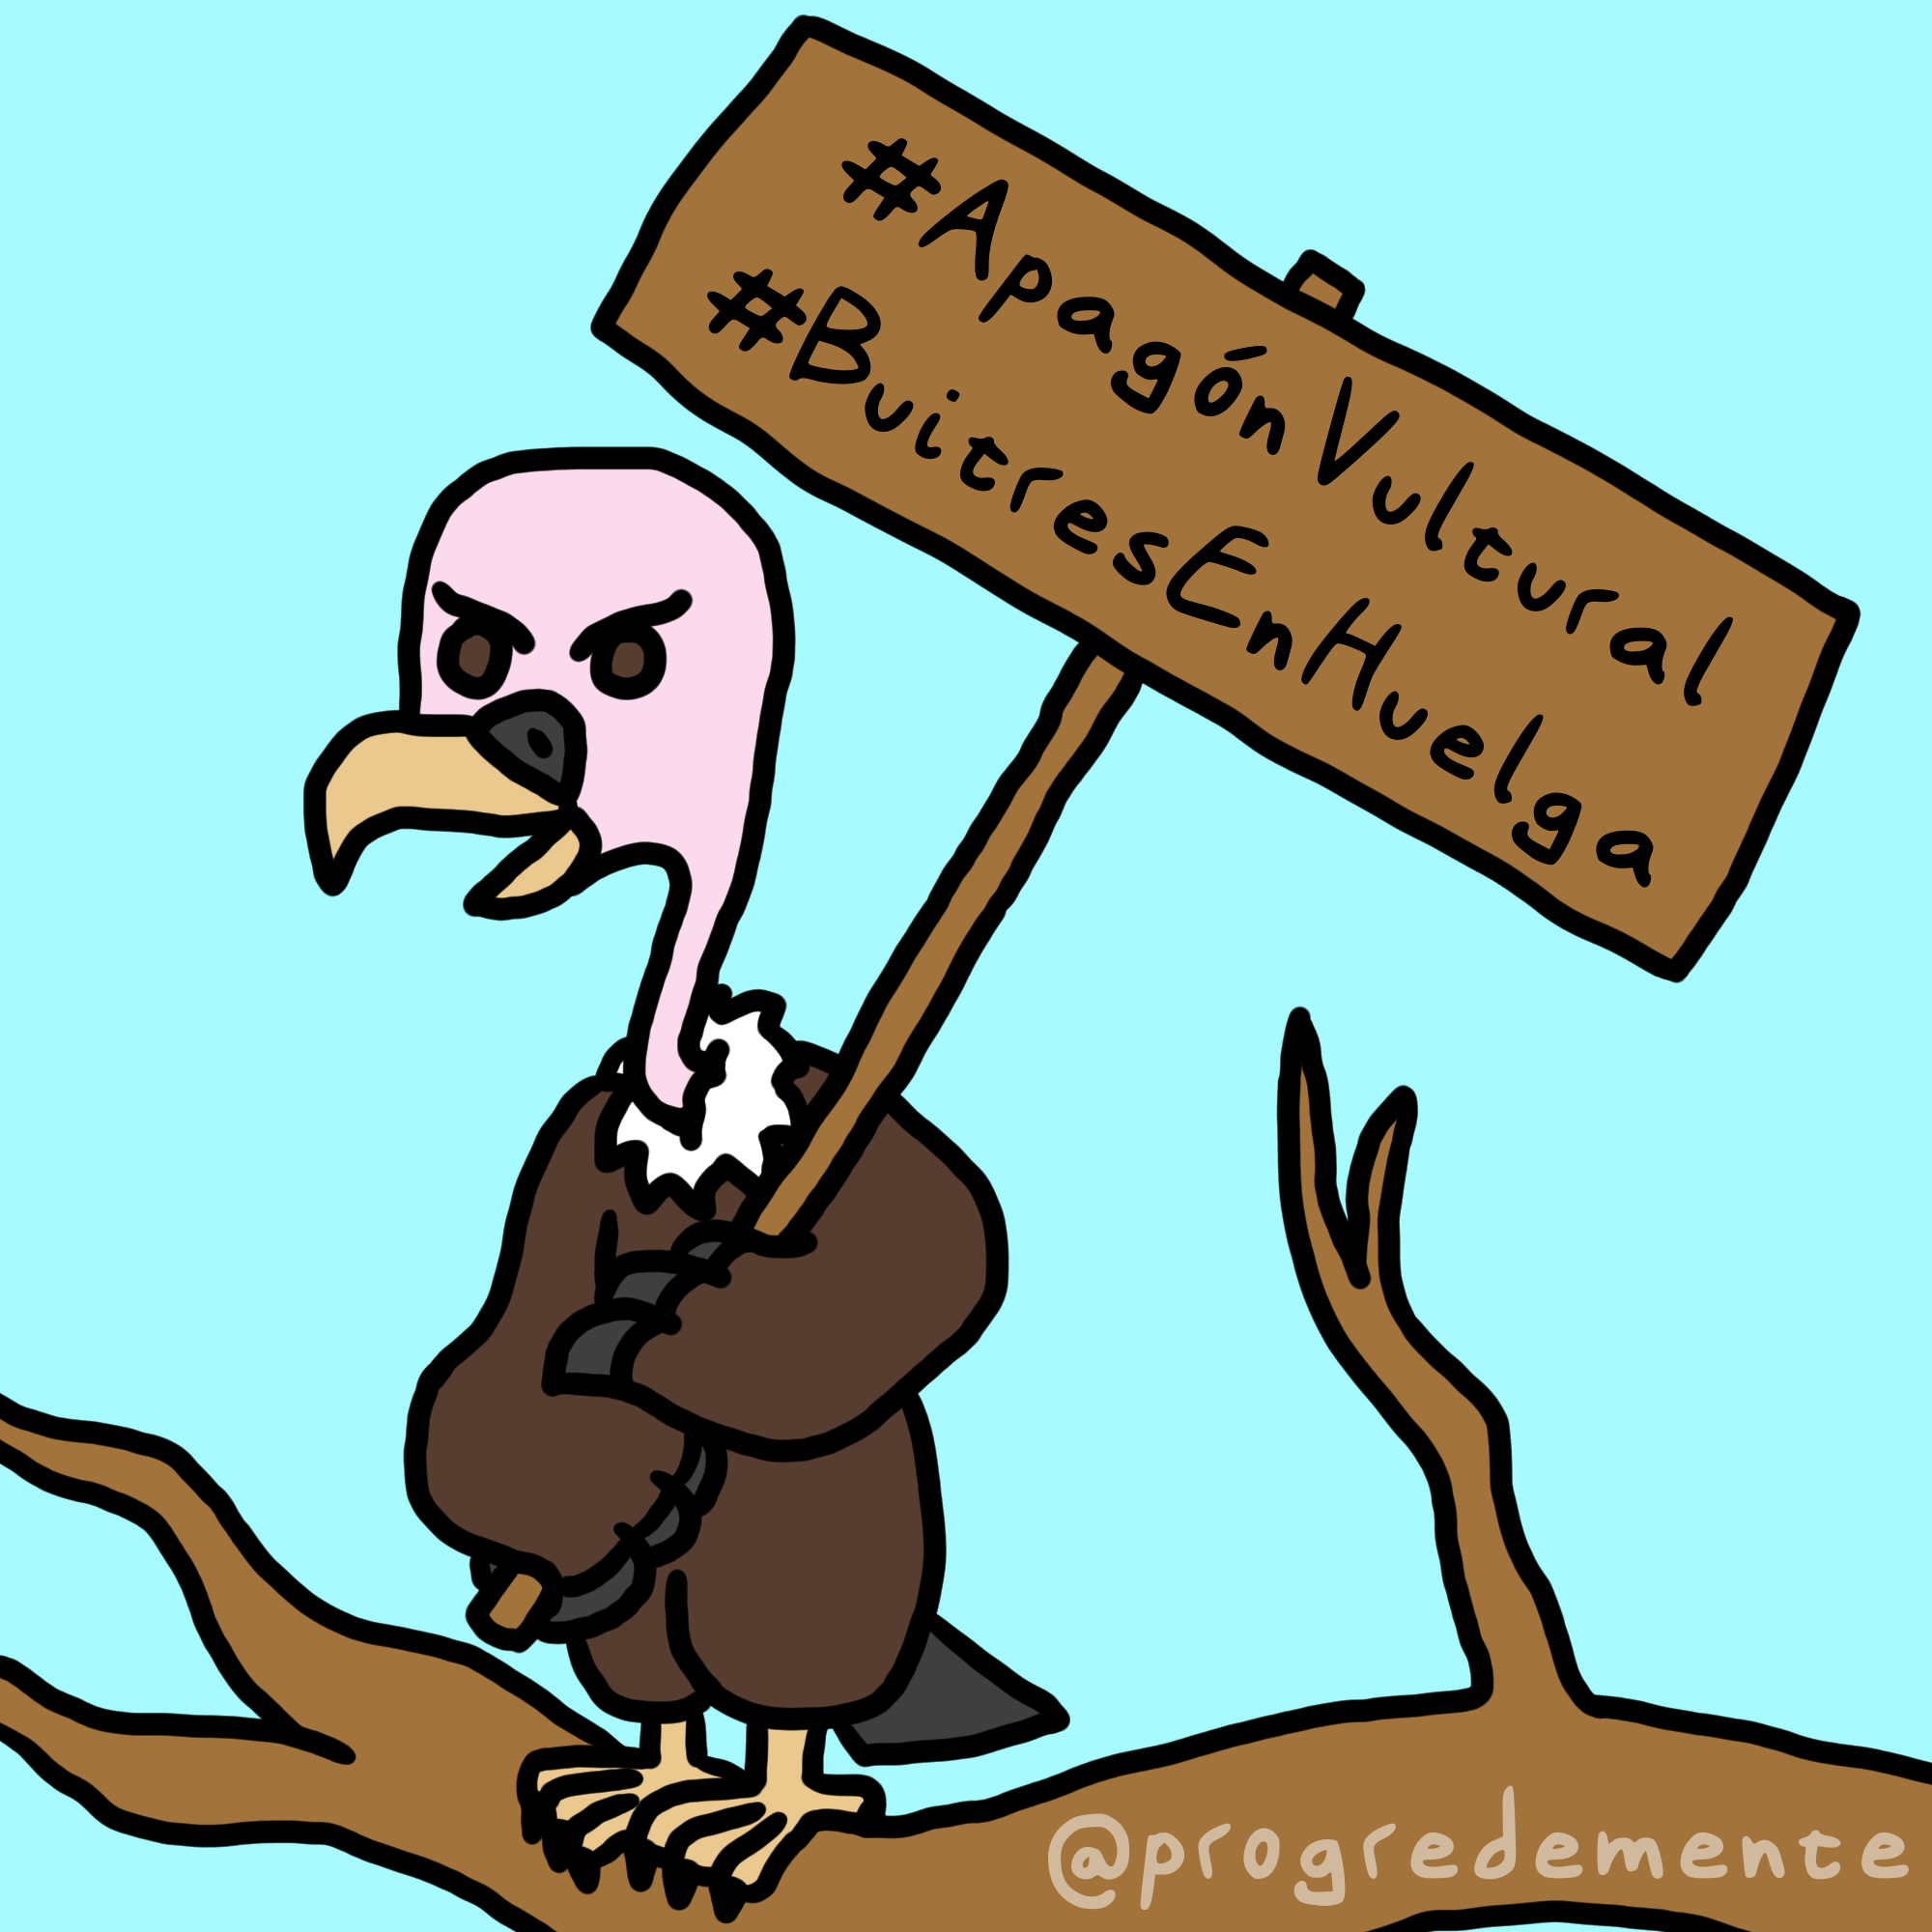 #ApagónVultural
#BuitresEnHuelga
@progredemente